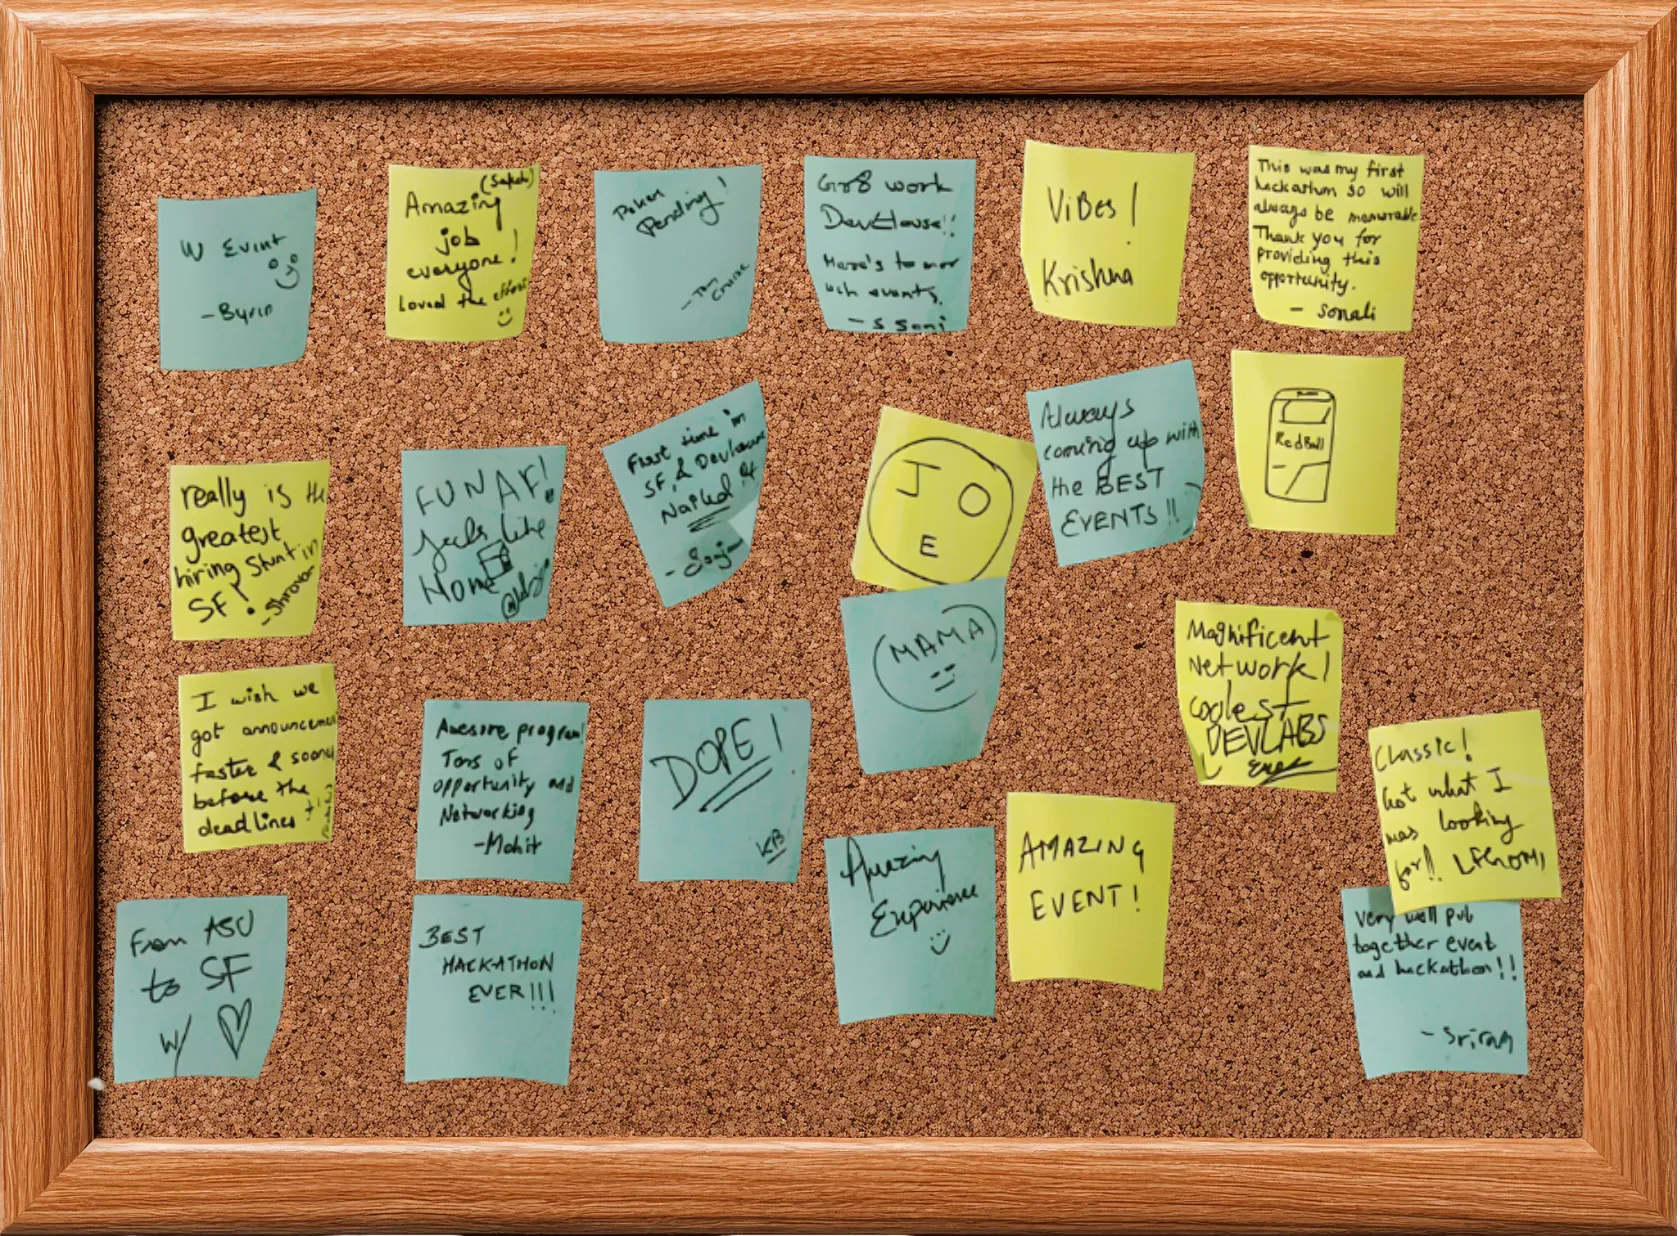 W Event
-Byrin
(Saketh)
Amazing
job
everyone!
Loved the efforts
Pending!
-Tom
Cruise
Gr8 work
DevHouse!!
Here's to mor
uch events.
- S Soni
ViBes!
Krishna
This was my first
hackathon so will
always be memorable
Thank you for
providing this
opportunity.
- Sonali
really is the
greatest
hiring Stunt in
SF!
FUN AF!
feels like
Home
First time in
SF, & Devhouse
Nailed it
J O
E
Always
coming up with
the BEST
EVENTS!!
RedBull
I wish we
got announcemen
faster & sooner
before the
deadlines
Awesome program!
Tons of
opportunity and
Networking
-Mohit
DOPE!
KB
MAMA
Magnificent
Network!
coolest
DEVLABS
Classic!
Got what I
was looking
for!!
From ASU
to SF
w/
BEST
HACKATHON
EVER!!!
Amazing
Experience
AMAZING
EVENT!
Very well put
together event
and hackathon!!
- Sriram